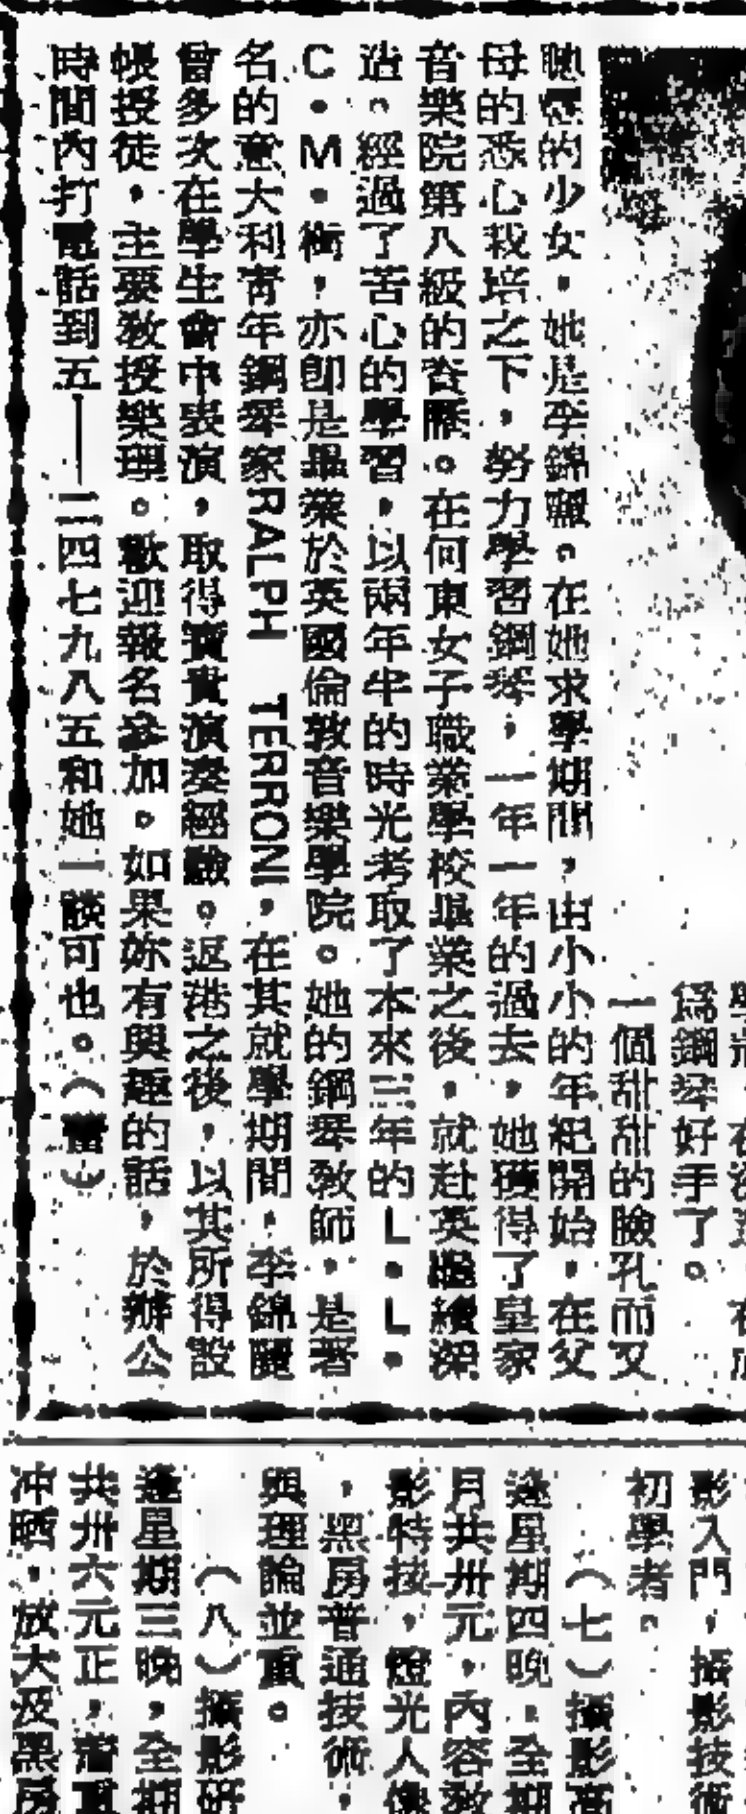 爲鋼琴好手了。
一個甜甜的臉孔而又
聰慧的少女，她是李錦麗。在她求學期間，由小小的年紀開始，在父
母的悉心栽培之下，努力學習鋼琴，一年一年的過去，她獲得了皇家
音樂院第八級的資歷。在何東女子職業學校畢業之後，就赴英繼續深
造。經過了苦心的學習，以兩年半的時光考取了本來三年的L•L•
C•M•銜，亦卽是畢業於英國倫敦音樂學院。她的鋼琴教師，是著
名的意大利青年鋼琴家RALPH TERRONI，在其就學期間，李錦麗
曾多次在學生會中表演，取得寶貴演奏經驗。返港之後，以其所得設
帳授徒，主要教授樂理。歡迎報名參加。如果妳有興趣的話，於辦公
時間內打電話到五——二四七九八五和她一談可也。（
影入門，攝影技術
初學者。
（七）攝影高
逢星期四晚，全期
月共卅元，內容教
影特技，燈光人像
，黑房普通技術，
與理論並重。
（八）攝影研
逢星期三晚，全期
共卅六元正，
冲晒，放大及黑房